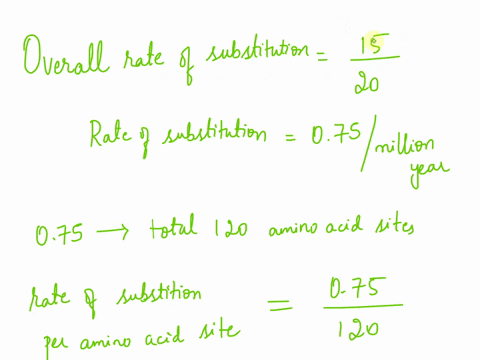 Overall rate of substitution = 15/20
Rate of substitution = 0.75/million year
0.75 → total 120 amino acid sites
rate of substition per amino acid site = 0.75/120